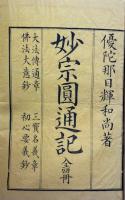 優陀那日輝和尚著
妙宗圓通記 全四冊
三寳名義章
初心要義鈔
大法傳通章
佛法大意鈔